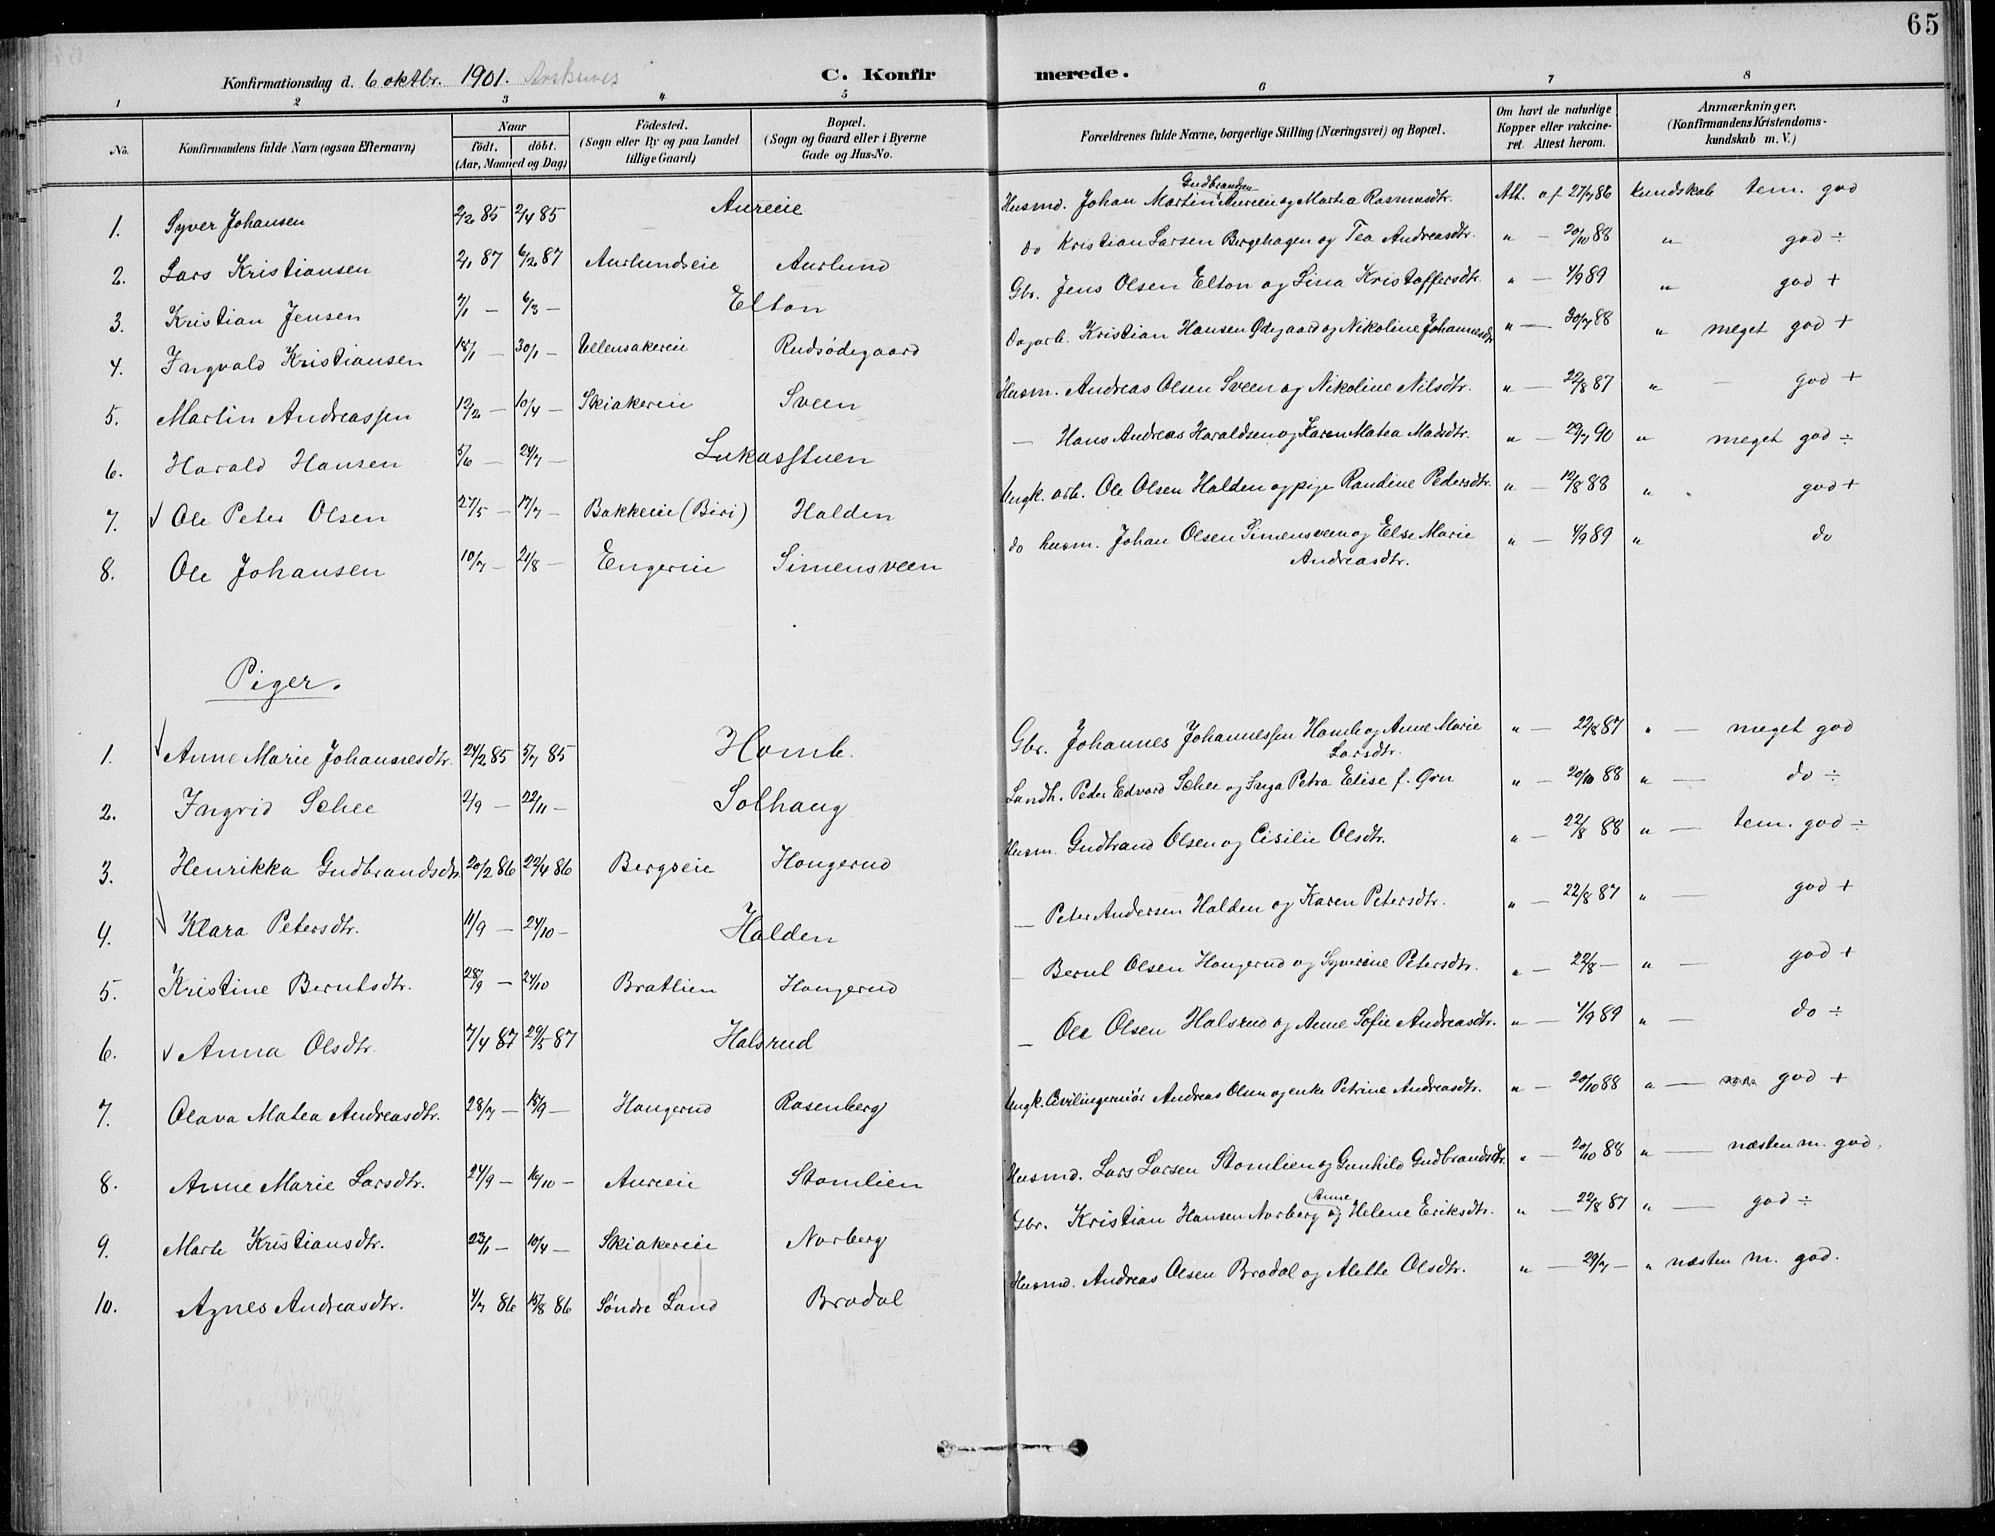 65
Konfirmationsdag d. 6 oktbr. 1901. C. Konfirmerede.
1 2 3 4 5 6 7 8
No. Konfirmandens fulde Navn (ogsaa Efternavn) Naar födt. döbt. (Aar, Maaned og Dag) Födested. (Sogn eller By og paa Landet tillige Gaard) Bopæl. (Sogn og Gaard eller i Byerne Gade og Hus-No. Forældrenes fulde Navne, borgerlige Stilling (Næringsvei) og Bopæl. Om havt de naturlige Kopper eller vakcineret. Attest herom. Anmærkninger. (Konfirmandens Kristendomskundskab m. V.)
1. Syver Johansen 2/2 85 2/4 85 Aureie Husmd. Johan Martin Gudbrandsen Aureie og Martea Rasmusdtr. Att. af 27/7 86 kundskab tem. god
2. Lars Kristiansen 2/1 87 6/2 87 Aurlundseie Aurlund do Kristian Larsen Bergehagen og Tea Andreasdtr. " — 20/10 88 " god ÷
3. Kristian Jensen 7/1 — 6/3 — Elton Gbr. Jens Olsen Elton og Lina Kristoffersdtr. " — 4/9 89 " god +
4. Ingvald Kristiansen 18/1 — 30/1 — Ullensakereie Rudsødegaard Dagarb. Kristian Hansen Ødegaard og Nikoline Johannesdtr " — 30/7 88 " meget god +
5. Martin Andreassen 12/2 — 10/4 — Skiakereie Sveen Husm. Andreas Olsen Sveen og Nikoline Nilsdtr. " — 22/8 87 " — god +
6. Harald Hansen 5/6 — 24/7 — Lukasstuen — Hans Andreas Haraldsen og Karen Matea Madsdtr. " — 29/7 90 " meget god ÷
7. Ole Peter Olsen 27/5 — 17/7 — Bakkeeie (Biri) Halden Ungk. arb. Ole Olsen Halden og pige Randine Pedersdtr. " — 12/8 88 " god +
8. Ole Johansen 10/7 — 21/8 — Engereie Simensveen do husm. Johan Olsen Simensveen og Else Marie Andreasdtr. " — 4/9 89 " do
Piger.
1. Anne Marie Johannesdtr. 24/2 85 5/7 85 Homb. Gbr. Johannes Johannessen Homb og Anne Marie Larsdtr. " — 22/8 87 " — meget god
2. Ingrid Schee 2/9 — 22/11 — Solhaug Landh. Peder Edvard Schee og Inga Petra Elise f. Ørn " — 20/10 88 " — do ÷
3. Henrikka Gudbrandsdtr. 20/2 86 22/4 86 Bergseie Hongerud Husm. Gudbrand Olsen og Cisilie Olsdtr. " — 22/8 88 " — tem. god ÷
4. Klara Petersdtr. 11/9 — 24/10 — Halden — Peter Andersen Halden og Karen Petersdtr. " — 22/8 87 " — god +
5. Kristine Berntsdtr. 28/9 — 24/10 Bratlien Hongerud — Bernt Olsen Hongerud og Syverine Petersdtr. " — 22/8 — " — god +
6. Anna Olsdtr. 7/4 87 29/5 87 Halsrud — Ole Olsen Halsrud og Anne Sofie Andreasdtr. " — 4/9 89 " — do ÷
7. Olava Matea Andreasdtr. 28/7 — 18/9 — Hongerud Rosenberg Ungk. Civilingeniør Andreas Olsen og enke Petrine Andreasdtr. " — 20/10 88 " — god +
8. Anne Marie Larsdtr. 24/9 — 16/10 — Aureie Stomlien Husmd. Lars Larsen Stomlien og Gunhild Gudbrandsdtr. " — 20/10 88 " — næsten m. god.
9. Marte Kristiansdtr. 23/1 — 10/4 — Skiakereie Norberg Gbr. Kristian Hansen Norberg og (Anne Helene Eriksdtr. " — 22/8 87 " — god ÷
10. Agnes Andreasdtr. 4/7 86 15/8 86 Søndre Land Brodal Husmd. Andreas Olsen Brodal og Alette Olsdtr. " — 29/7 — " næsten m. god.